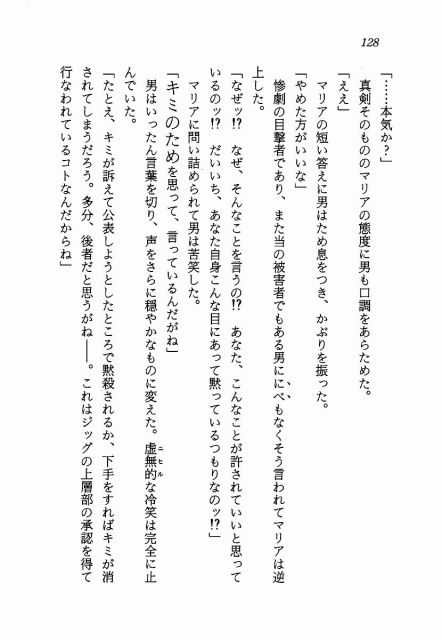 128
「……本気か?」
真剣そのもののマリアの態度に男も口調をあらためた。
「ええ」
マリアの短い答えに男はため息をつき、かぶりを振った。
「やめた方がいいな」
惨劇の目撃者であり、また当の被害者でもある男ににべもなくそう言われてマリアは逆
上した。
「なぜッ!? なぜ、そんなことを言うの!? あなた、こんなことが許されていいと思って
いるのッ!? だいいち、あなた自身こんな目にあって黙っているつもりなのッ!?」
マリアに問い詰められて男は苦笑した。
「キミのためを思って、言っているんだがね」
男はいったん言葉を切り、声をさらに穏やかなものに変えた。虚無的な冷笑は完全に止
んでいた。
「たとえ、キミが訴えて公表しようとしたところで黙殺されるか、下手をすればキミが消
されてしまうだろう。多分、後者だと思うがね――。これはジッグの上層部の承認を得て
行なわれているコトなんだからね」